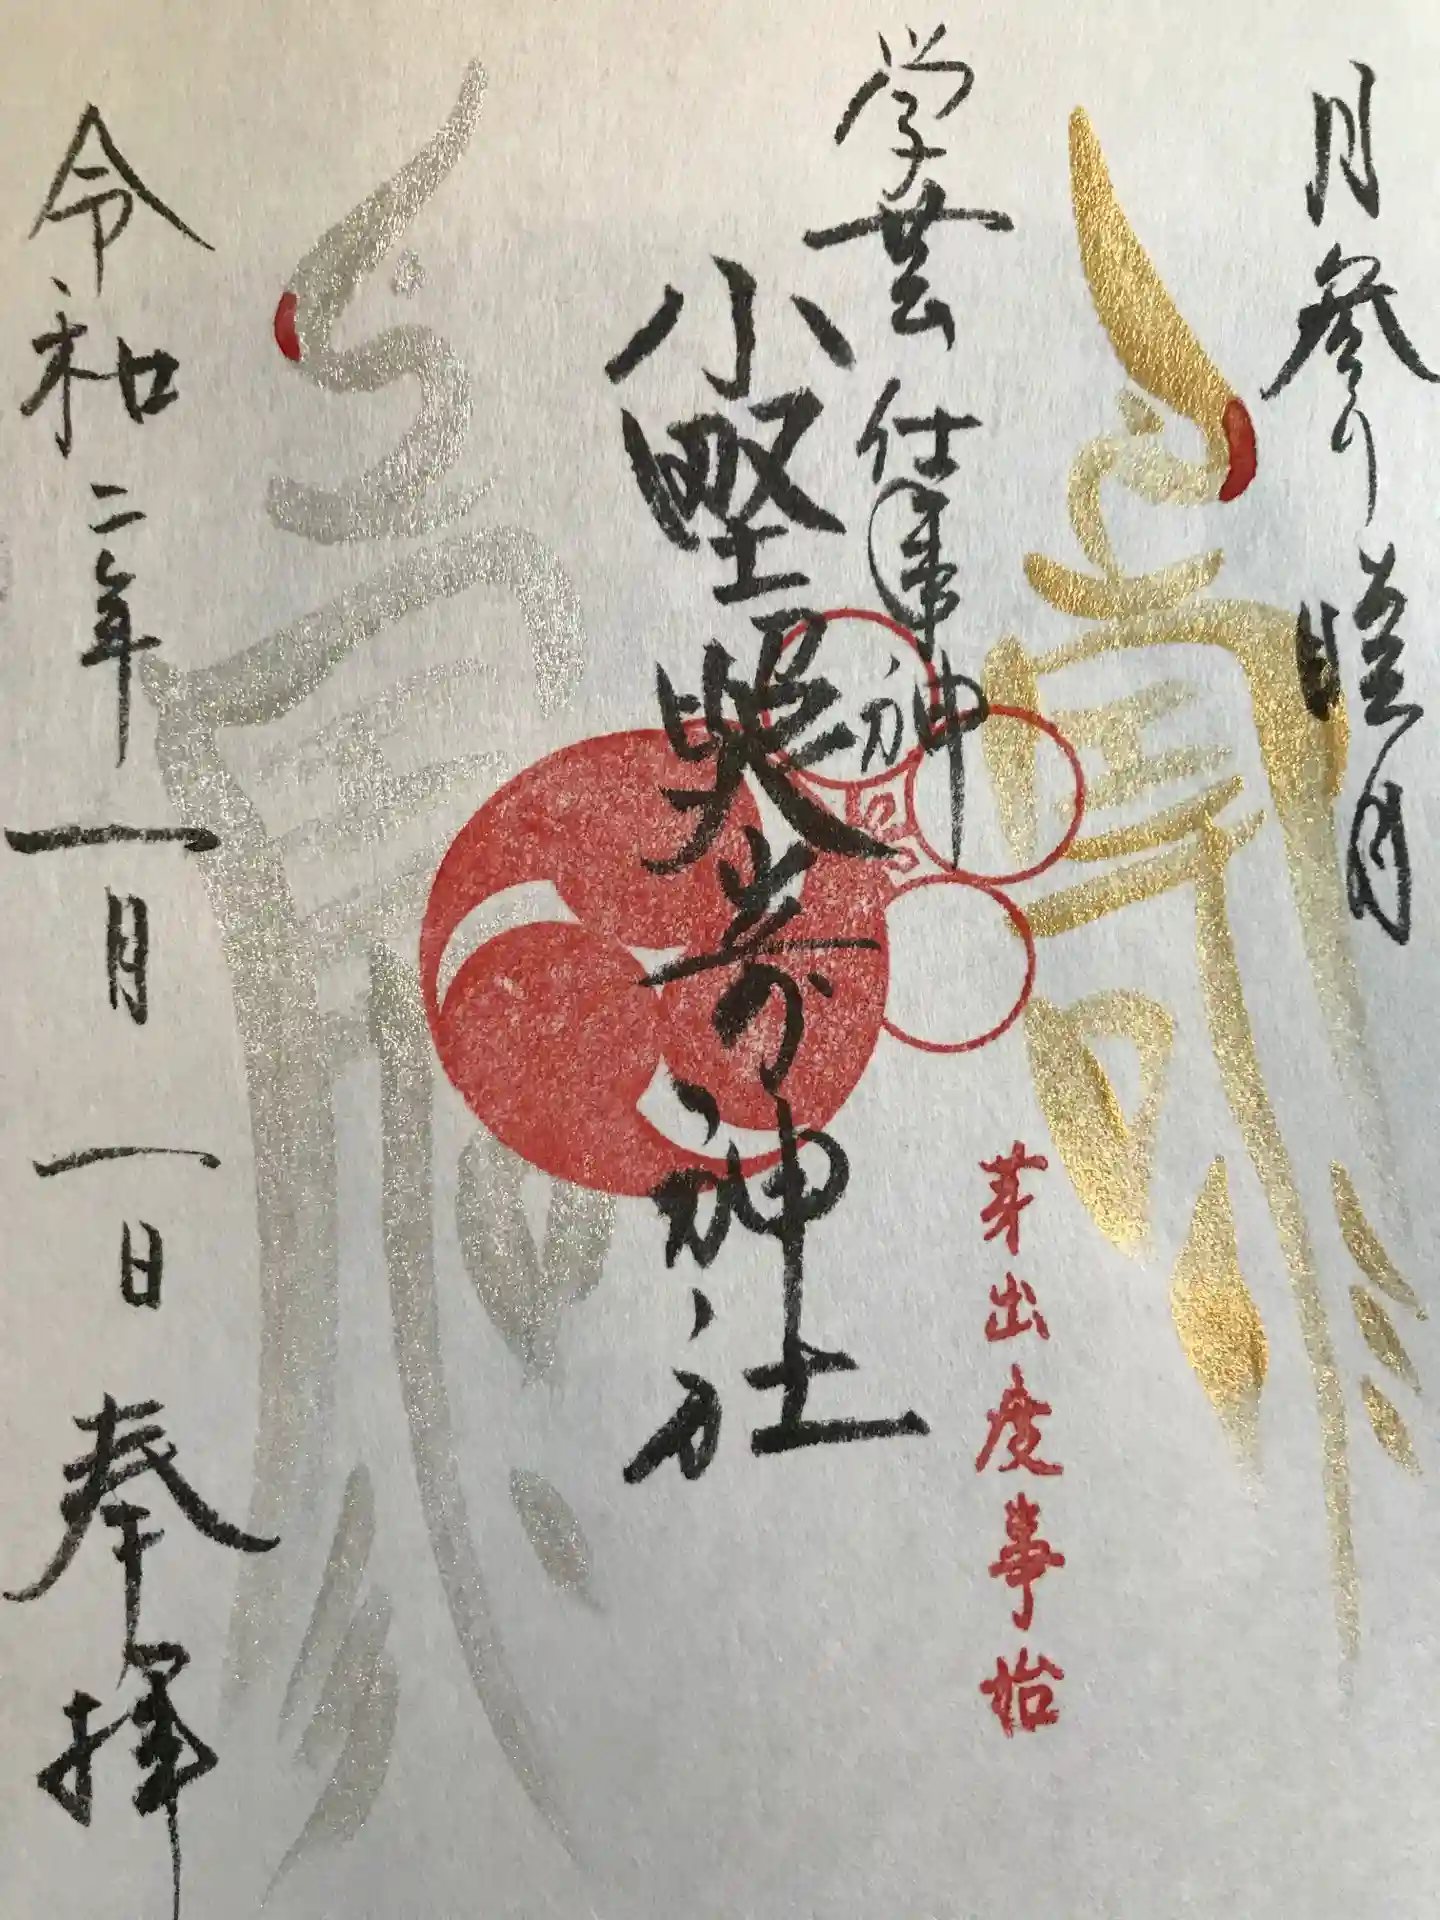 月参り 睦月
学芸 仕事神
小野照崎神社
芽出度事始
令和二年一月一日奉拝